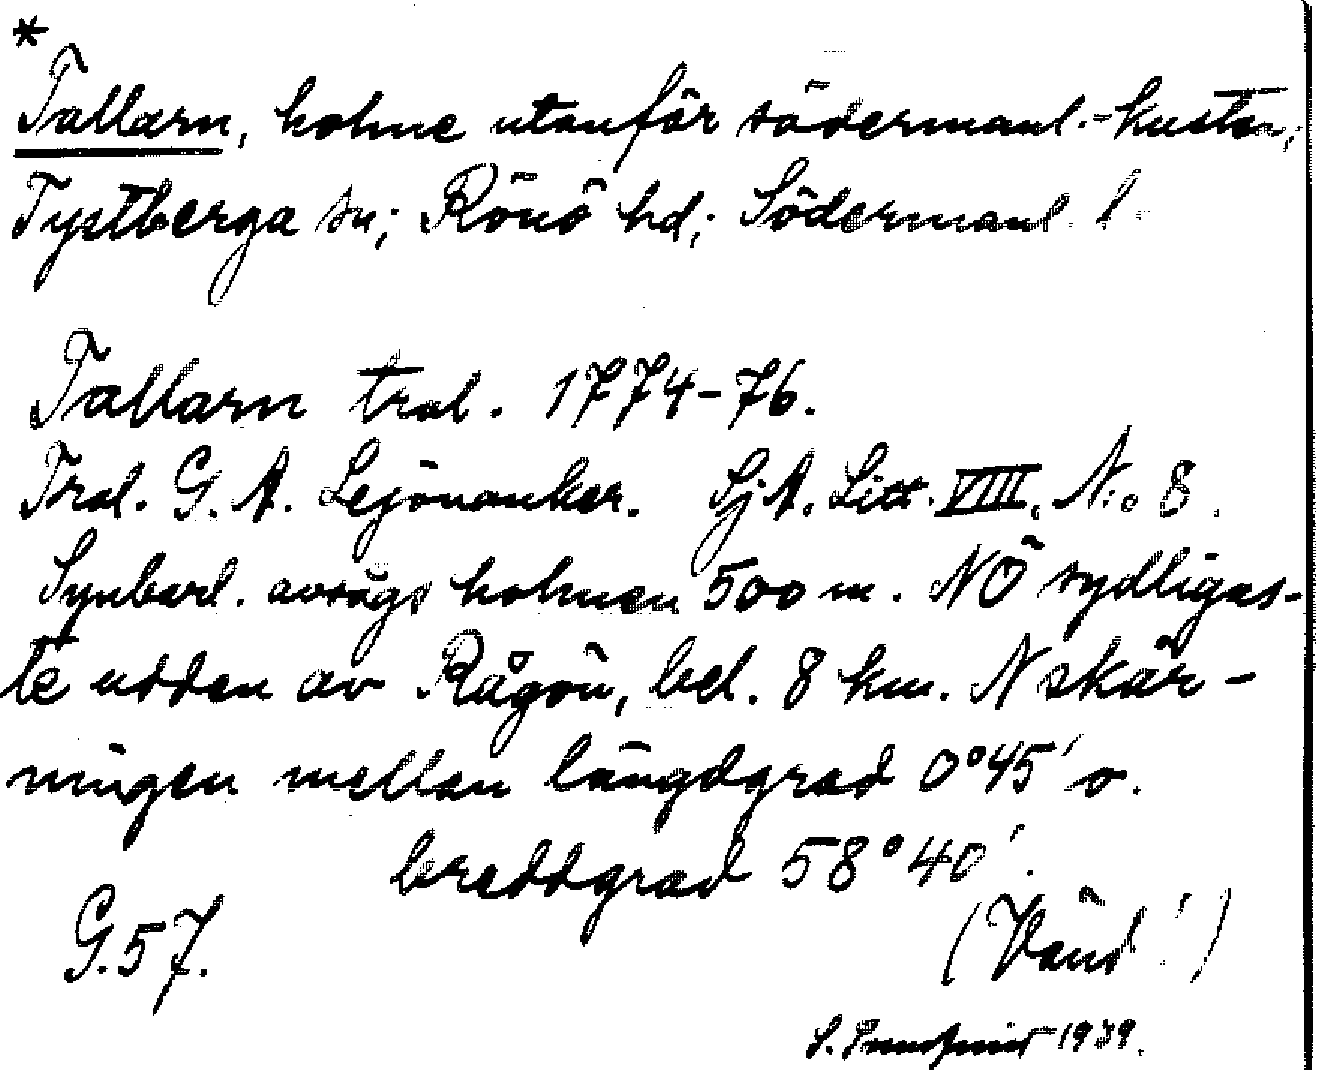 *
Tallarn, holme utanför södermanl.-kusten,
Tystberga sn; Rönö hd; Södermanl. l.
Tallarn trol. 1774-76.
Trol. G. A. Lejonanker. SjA. Litt. VIII, N:o 8.
Synbarl. avsågs holmen 500 m. NÖ sydligas-
te udden av Rågön, bel. 8 km. N skär-
ningen mellan längdgrad 0°45' o.
breddgrad 58°40'.
G.57.
(Vänd!)
S. 1939.